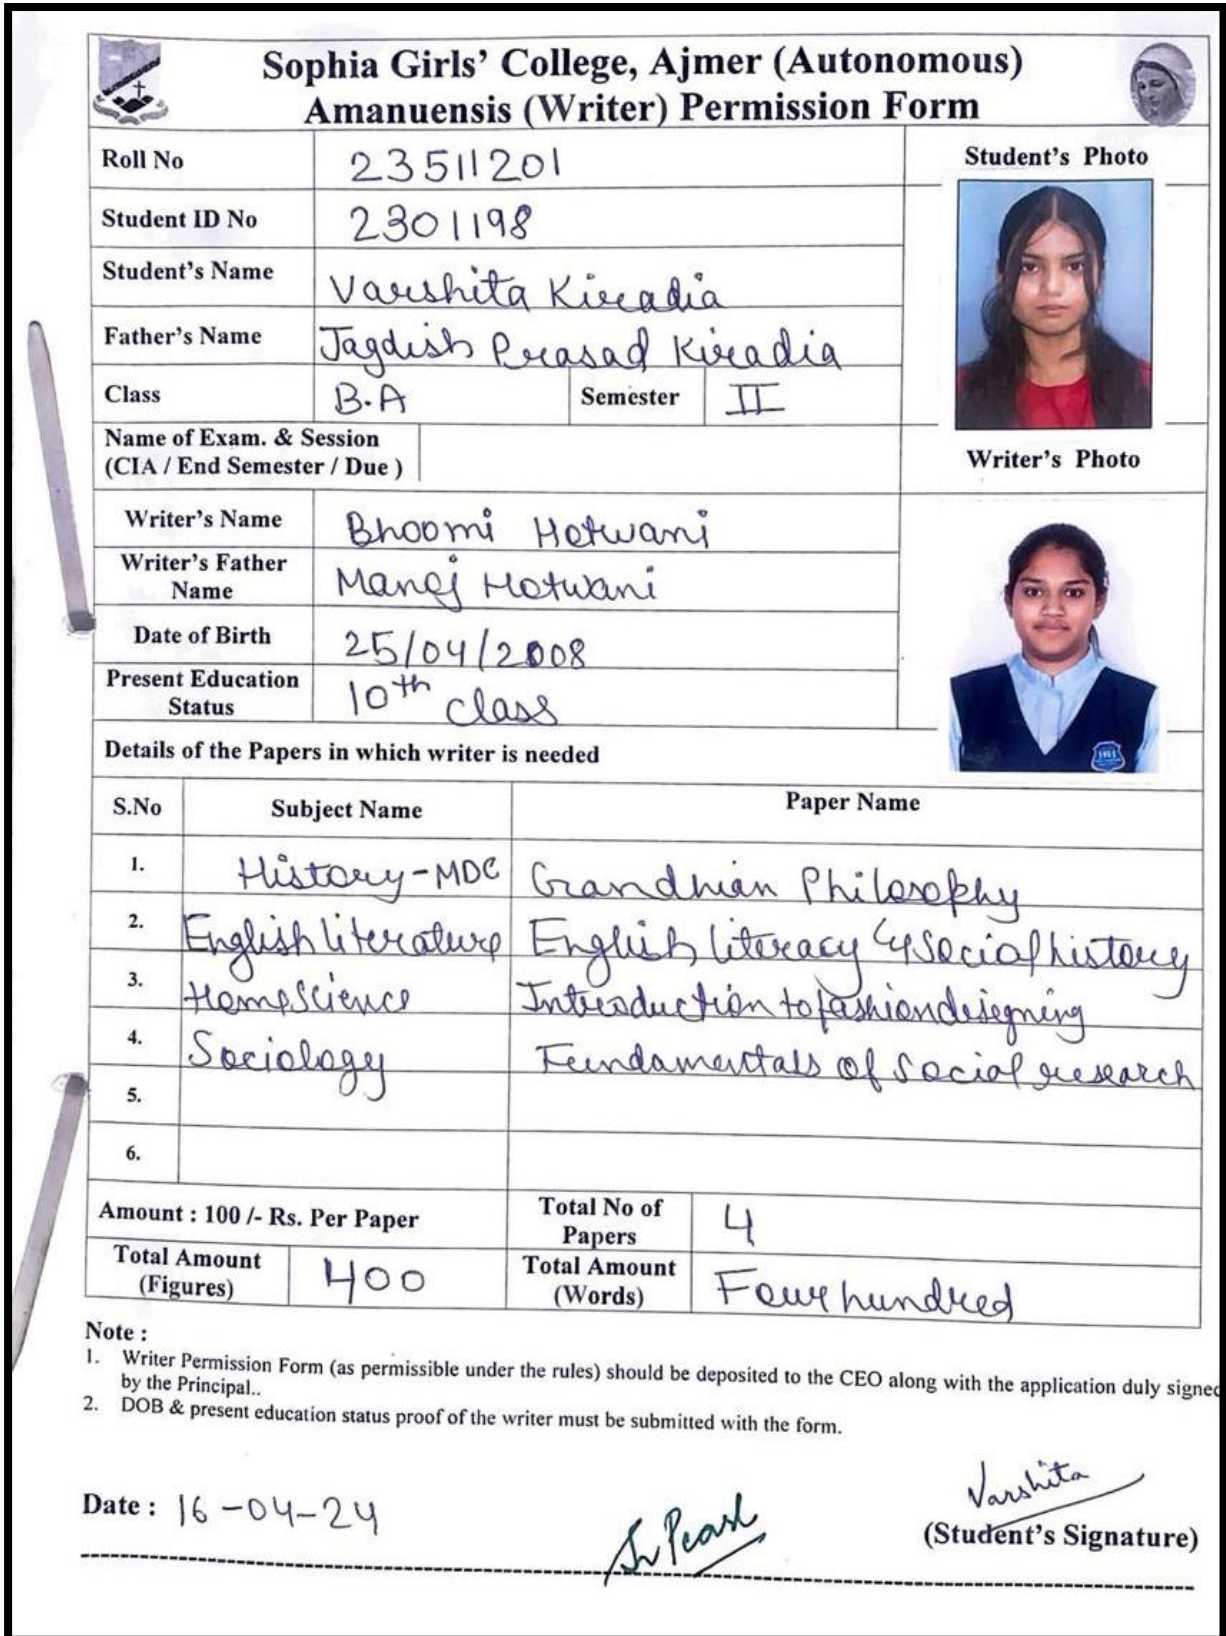 Sophia Girls' College, Ajmer (Autonomous)
Amanuensis (Writer) Permission Form
Roll No 23511201
Student's Photo
Student ID No 2301198
Student's Name Varshita Kiradia
Father's Name Jagdish Prasad Kiradia
Class B.A Semester II
Name of Exam. & Session
(CIA / End Semester / Due )
Writer's Photo
Writer's Name Bhoomi Hotwani
Writer's Father
Name Manoj Hotwani
Date of Birth 25/04/2008
Present Education
Status 10th class
Details of the Papers in which writer is needed
S.No Subject Name Paper Name
1. History-MDC Grandhian Philosophy
2. English literature English literacy & Social history
3. Home Science Introduction to fashion designing
4. Sociology Fundamentals of Social research
5.
6.
Amount : 100 /- Rs. Per Paper Total No of
Papers 4
Total Amount
(Figures) 400 Total Amount
(Words) Four hundred
Note :
1. Writer Permission Form (as permissible under the rules) should be deposited to the CEO along with the application duly signed
by the Principal..
2. DOB & present education status proof of the writer must be submitted with the form.
Date : 16-04-24
Sr Pearl
Varshita
(Student's Signature)